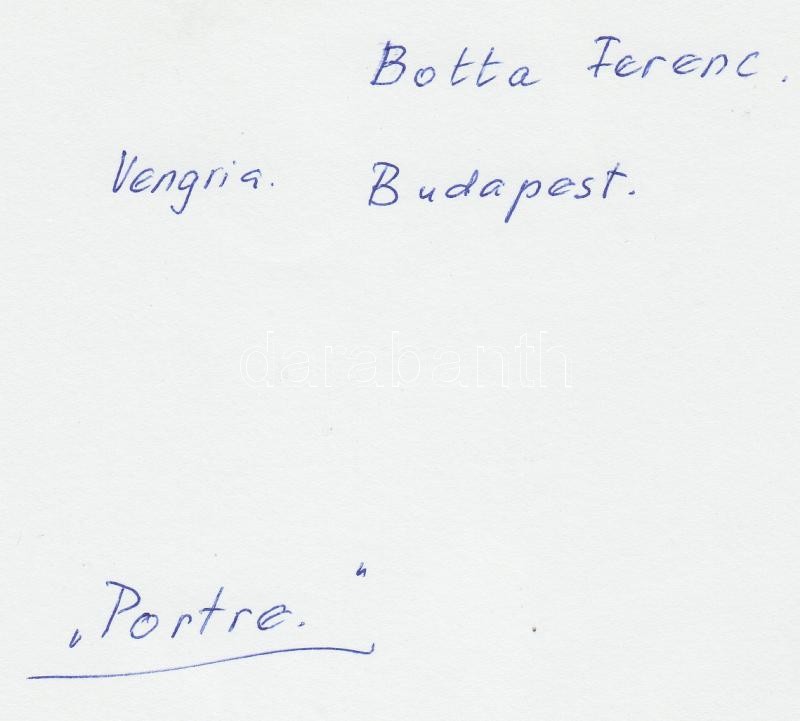 Botta Ferenc.
Vengria. Budapest.
darabanth
„Portre."